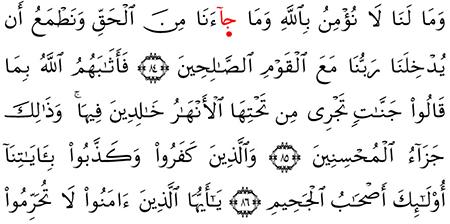 وَمَا لَنَا لَا نُؤْمِنُ بِٱللَّهِ وَمَا جَآءَنَا مِنَ ٱلْحَقِّ وَنَطْمَعُ أَن
يُدْخِلَنَا رَبُّنَا مَعَ ٱلْقَوْمِ ٱلصَّـٰلِحِينَ ٨٤ فَأَثَـٰبَهُمُ ٱللَّهُ بِمَا
قَالُوا۟ جَنَّـٰتٍ تَجْرِى مِن تَحْتِهَا ٱلْأَنْهَـٰرُ خَـٰلِدِينَ فِيهَا ۚ وَذَٰلِكَ
جَزَآءُ ٱلْمُحْسِنِينَ ٨٥ وَٱلَّذِينَ كَفَرُوا۟ وَكَذَّبُوا۟ بِـَٔايَـٰتِنَآ
أُو۟لَـٰٓئِكَ أَصْحَـٰبُ ٱلْجَحِيمِ ٨٦ يَـٰٓأَيُّهَا ٱلَّذِينَ ءَامَنُوا۟ لَا تُحَرِّمُوا۟